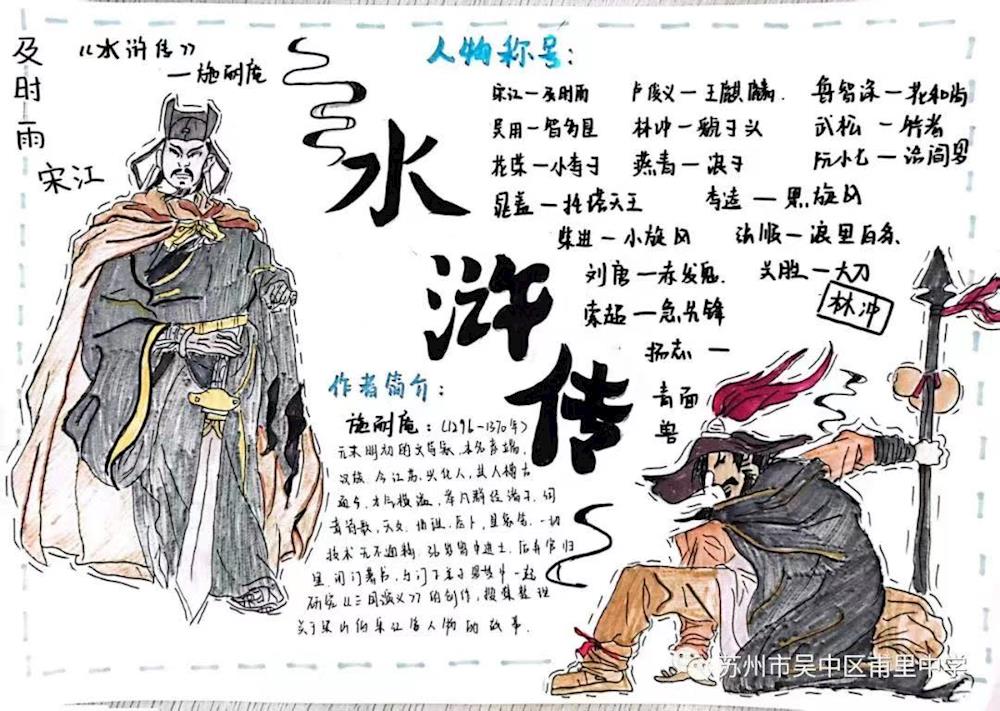 及时雨
宋江
《水浒传》
—施耐庵
水浒传
人物称号:
宋江—及时雨 卢俊义—玉麒麟. 鲁智深—花和尚
吴用—智多星 林冲—豹子头 武松—行者
花荣—小李广 燕青—浪子 阮小七—活阎罗
晁盖—托塔天王 李逵—黑旋风
柴进—小旋风 张顺—浪里白条.
刘唐—赤发鬼. 关胜—大刀
索超—急先锋
杨志—
青面
兽
林冲
作者简介:
施耐庵:(1296-1370年)
元末明初的文学家,本名彦端,
汉族,今江苏,兴化人,其人博古
通今,才气横溢,举凡群经诸子,词
章诗歌,天文、地理、医卜、星象等,一切
技术无不精,35岁曾中进士,后弃官归
里,闭门著书,与门下弟子罗贯中一起
研究《三国演义》的创作,搜集整理
关于梁山伯宋江等人物的故事.
苏州市吴中区甫里中学